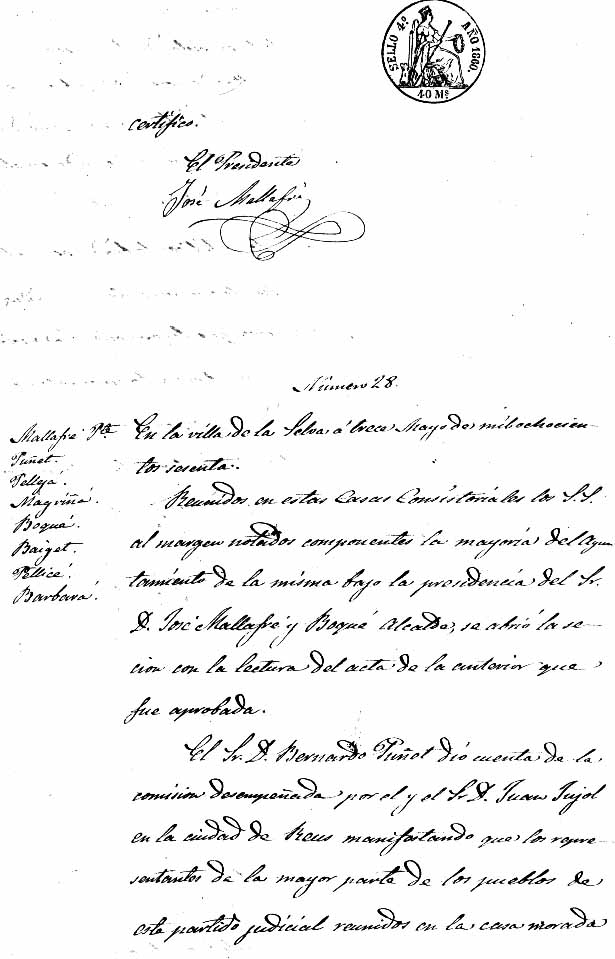 SELLO 4º AÑO 1860.
40 Ms
certifico.
El Presidente
José Mallafré
Número 28.
Mallafré Pte
Puñet.
Pellejá.
Magriñá.
Boqué.
Baiget.
Pellicé.
Barbará.
En la villa de la Selva á trece Mayo de mil ochocien-
tos sesenta.
Reunidos en estas Casas Consistoriales los S.S.
al margen notados componentes la mayoría del Ayun
tamiento de la misma bajo la presidencia del Sr.
D. José Mallafré y Boqué Alcalde, se abrió la se-
cion con la lectura del acta de la anterior que
fue aprobada.
El Sr. D. Bernardo Puñet dió cuenta de la
comision desempeñada por el y el Sr. D. Juan Pujol
en la ciudad de Reus manifestando que los repre-
sentantes de la mayor parte de los pueblos de
este partido judicial reunidos en la casa morada